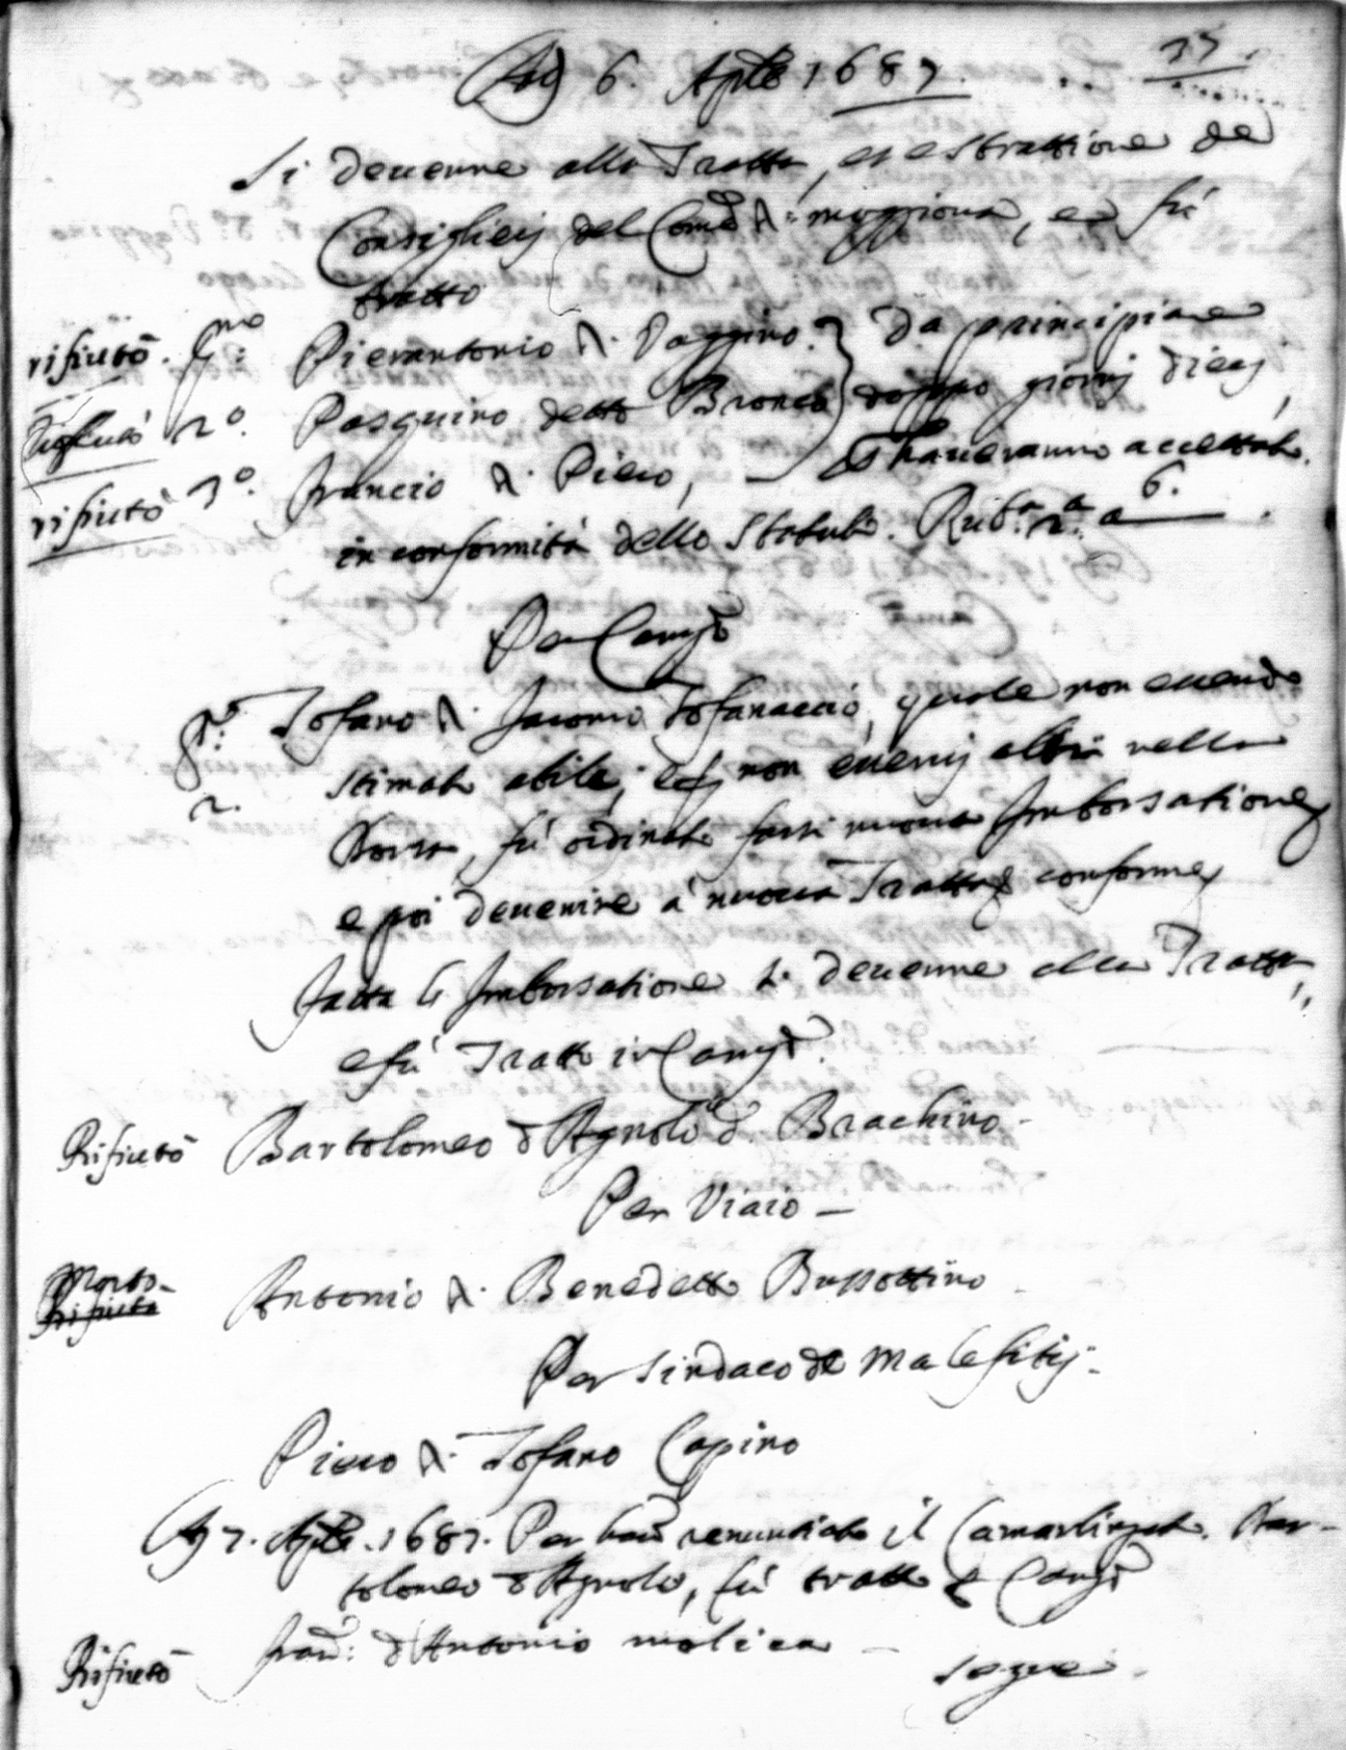 35
Adì 6. Aple 1687.
Si devenne alla Tratta, et estrattione de
Consiglieri del Come di moggiona, ed fù
tratto
rifiutò. Pmo: Pierantonio di Poggino. Da principiare
Rifiutò 2o. Pasquino detto Bronca doppo giorni dieci,
rifiutò 3o. Francio di Piero, — et haveranno accettato.
in conformità dello Statuto. Rub.a 2.a a 6.
Per Camgo
Po: Tofano di Jacomo Tofanaccio, quale non essendo
2. stimato abile, et non esservi altri nella
Borsa, fù ordinato farsi nuova Imborsatione
e poi devenire à nuova Tratta conforme
fatta la Imborsatione si devenne alla Tratta,
e fù Tratto in Camgo.
Rifiutò Bartolomeo d'Agnolo d. Brachino.
Per Viaio —
Morto Rifiutò Antonio di Benedetto Bussottino
Per Sindaco de Malefitij.
Piero di Tofano Capino
Adì 7. Aple. 1687. Per haver renuntiato il Camarlingato. Bar-
tolomeo d'Agnolo, fù tratto p Camgo
Rifiutò Franco: d'Antonio molica —
segue.